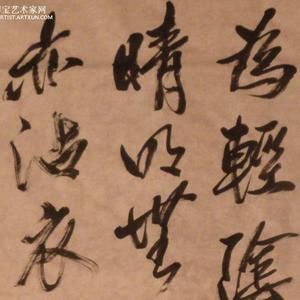 宝艺术家网
ARTIST.ARTXUN.COM
為輕陰
晴明無
亦沾衣